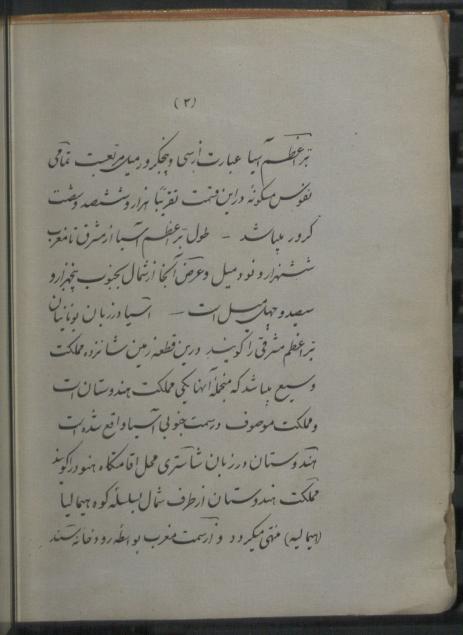 (۳)
بر اعظم آسیا عبارت از سی و پنجکرور میل مربعست تمامی
نفوس مسکونهٔ در این قسمت تقریبًا هزار و ششصد و شصت
کرور میباشد – طول بر اعظم آسیا از مشرق تا مغرب
ششهزار و نود میل و عرض آنجا از شمال بجنوب پنجهزار و
سیصد و چهل میل است – آسیا در زبان یونانیان
بر اعظم مشرقی را گویند در ین قطعه زمین شانزده مملکت
وسیع میباشد که منجملهٔ آنها یکی مملکت هندوستان است
و مملکت موصوف در سمت جنوبی آسیا واقع شده است
هندوستان در زبان شاستری محل اقامتگاه هنود را گویند
مملکت هندوستان از طرف شمال بسلسلهٔ کوه هیمالیا
(هیمالیه) منتهی میگردد و از سمت مغرب بواسطهٔ رودخانهٔ سند